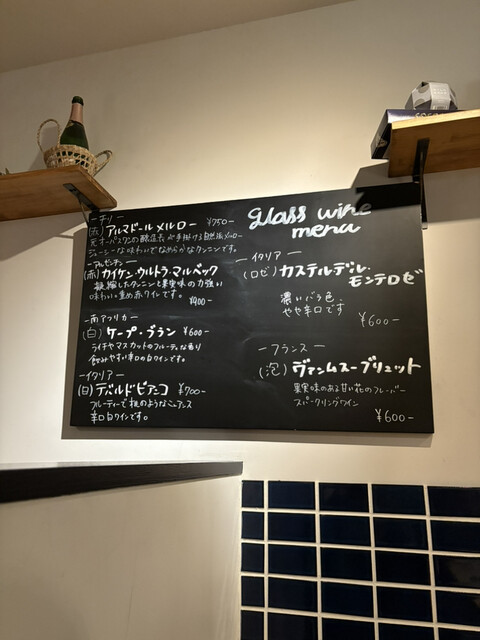 glass wine
menu
ーチリー
(赤) アルマドール メルロー ¥750-
元オーパスワンの醸造長が手掛ける自然派メルロー
ジューシーな味わいでなめらかなタンニンです。
ーアルゼンチンー
(赤) カイケン・ウルトラ・マルベック
凝縮したタンニンと果実味の力強い
味わい。重め赤ワインです。
¥900-
ー南アフリカー
(白) ケープ・ブラン ¥600-
ライチやマスカットのフルーティな香り
飲みやすい辛口の白ワインです。
ーイタリアー
(白) テバルドビアンコ ¥700-
フルーティーで桃のようなニュアンス
辛口白ワインです。
ーイタリアー
(ロゼ) カステル・デル・
モンテロゼ
濃いバラ色。
やや辛口です
¥600-
ーフランスー
(泡) ヴァンムスーブリュット
果実味のある甘い花のフレーバー
スパークリングワイン
¥600-